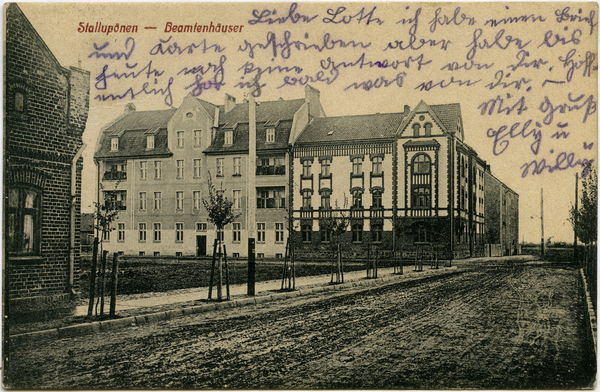 Stallupönen — Beamtenhäuser
Liebe Lotte ich habe einen Brief
und Karte geschrieben aber habe bis
heute noch keine antwort von dir. Hoff-
entlich hör ich bald was von dir. —
Mit Gruß
Elly u
Willy